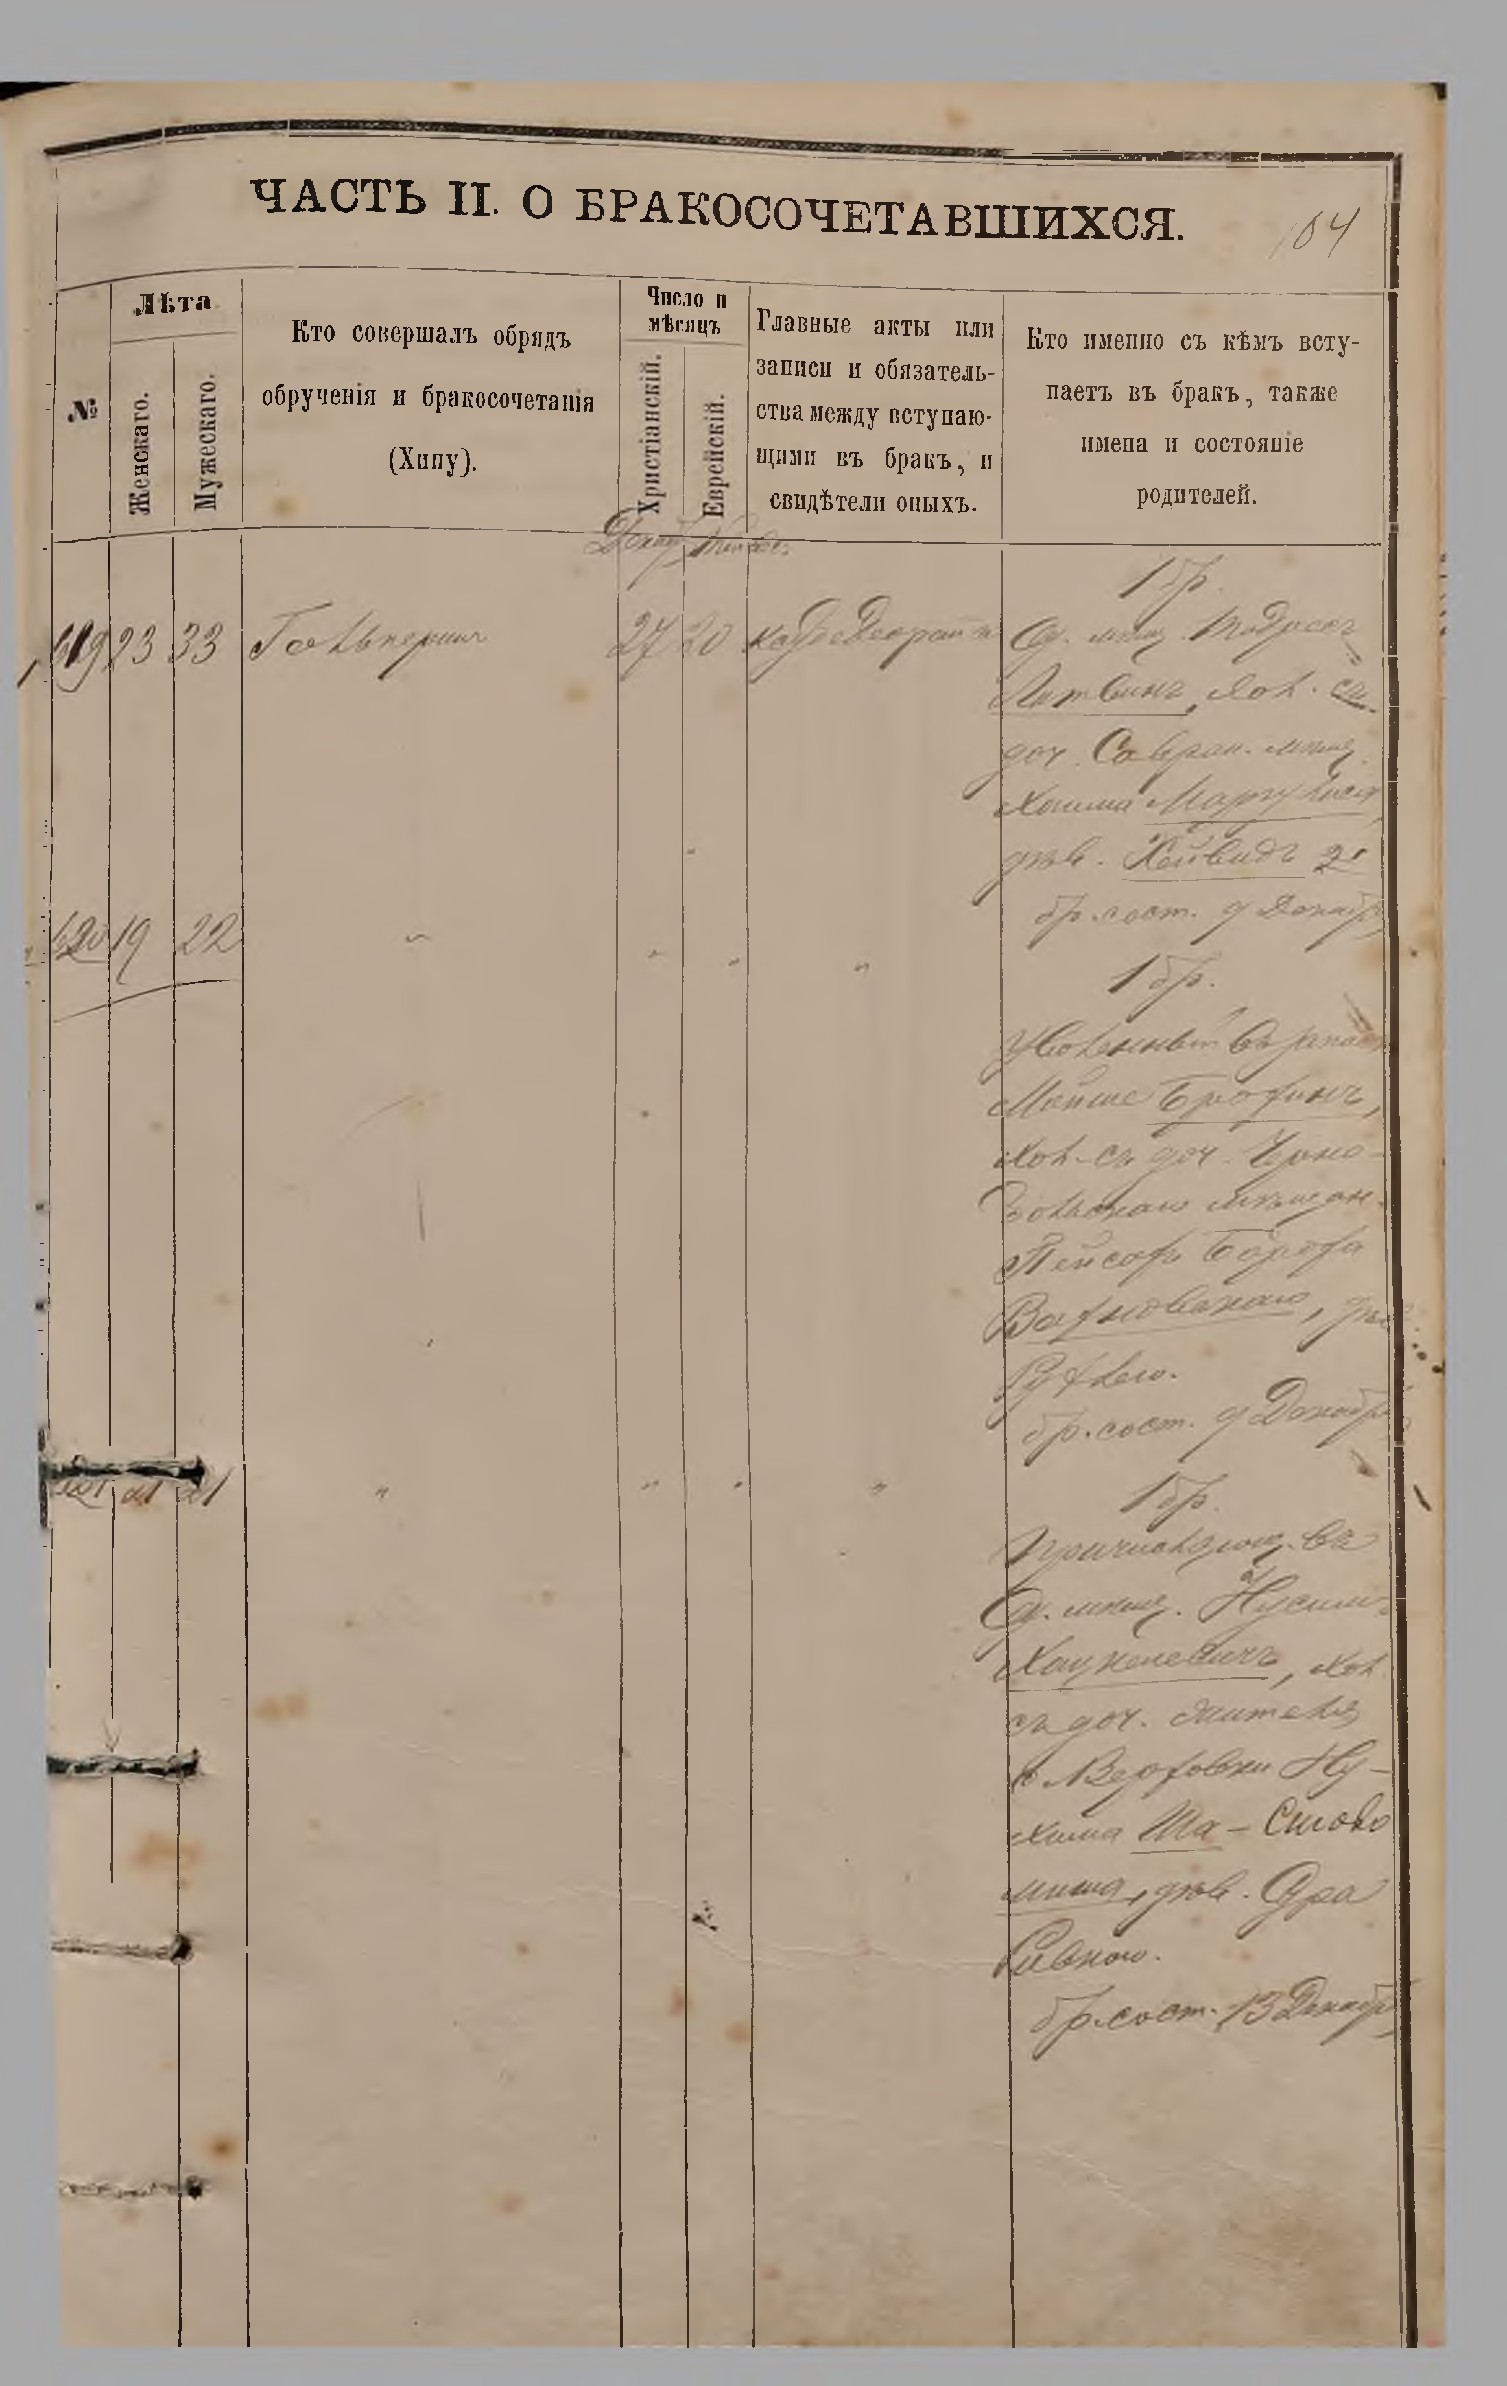 ЧАСТЬ II. О БРАКОСОЧЕТАВШИХСЯ.
104
№
Лѣта
Женскаго.
Мужескаго.
Кто совершалъ обрядъ
обрученія и бракосочетанія
(Хипу).
Число и
мѣсяцъ
Христіанскій.
Еврейскій.
Главные акты или
записи и обязатель-
ства между вступаю-
щими въ бракъ, и
свидѣтели оныхъ.
Кто именно съ кѣмъ всту-
паетъ въ бракъ, также
имена и состояніе
родителей.
Декаб
1 бр.
619 23 33 Гальперин 27 20 Од. мѣщ. Тодресъ
Литвинъ, хол. съ
доч. Савран. мѣщ.
Хаима Маргулиса,
дѣв. Хейвидъ 21
бр. сост. 9 Декабр
620 19 22 " " " "
1 бр.
Уволенный въ запасъ
Мойше Брофинъ,
хол. съ доч. Черно-
мѣщан.
Пейсаха Бороха
дѣв
Рухлею.
бр. сост. 9 Декабр
21 21 " " " "
1 бр.
Причисляющ. въ
Од. мѣщ. Нусим
Хацкелевичъ, хол.
съ доч. жителя
Ну-
хима Ша-
дѣв. Сура
Ривкою.
бр. сост. 13 Декабр